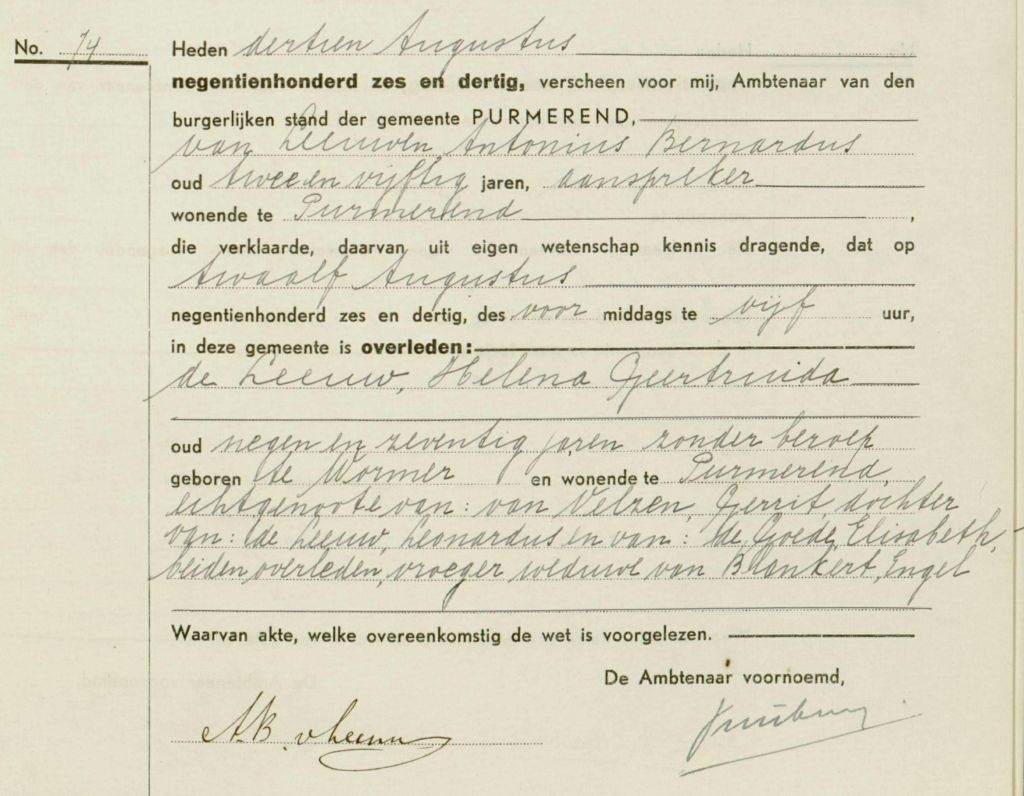 No. 74
Heden dertien Augustus
negentienhonderd zes en dertig, verscheen voor mij, Ambtenaar van den
burgerlijken stand der gemeente PURMEREND,
van Leeuwen, Antonius Bernardus
oud twee en vijftig jaren, aanspreker
wonende te Purmerend,
die verklaarde, daarvan uit eigen wetenschap kennis dragende, dat op
twaalf Augustus
negentienhonderd zes en dertig, des voor middags te vijf uur,
in deze gemeente is overleden:
de Leeuw, Helena Geertruida
oud negen en zeventig jaren zonder beroep
geboren te Wormer en wonende te Purmerend,
echtgenoote van: van Velzen, Gerrit, dochter
van: de Leeuw, Leonardus en van: de Goede, Elisabeth,
beiden overleden, vroeger weduwe van Blankert, Engel
Waarvan akte, welke overeenkomstig de wet is voorgelezen.
De Ambtenaar voornoemd,
A.B. v Leeuw